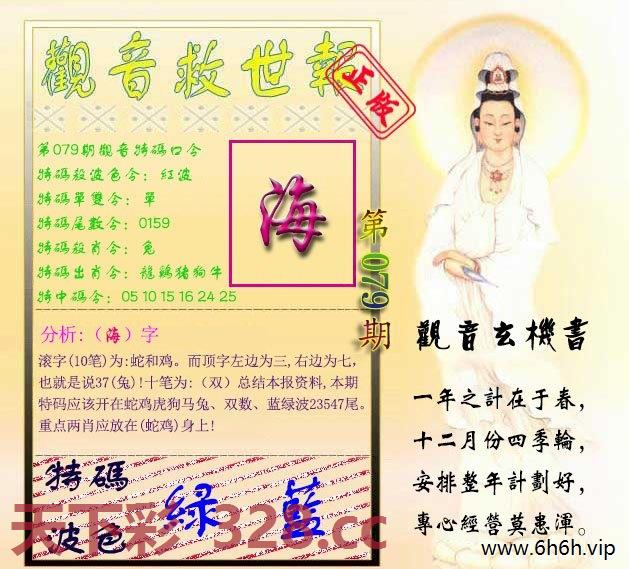 觀音救世報
正版
第079期觀音特碼口令
特碼殺波色令：紅波
特碼單雙令：單
特碼尾數令：0159
特碼殺肖令：兔
特碼出肖令：龍鷄猪狗牛
特中碼令：05 10 15 16 24 25
海
第079期
分析:（海）字
滚字(10笔)为:蛇和鸡。而顶字左边为三,右边为七，
也就是说37(兔)!十笔为:（双）总结本报资料,本期
特码应该开在蛇鸡虎狗马兔、双数、蓝绿波23547尾。
重点两肖应放在(蛇鸡)身上!
特碼
波色
綠 藍
天下彩 328.cc
觀音玄機書
一年之計在于春，
十二月份四季輪，
安排整年計劃好，
專心經營莫患渾。
www.6h6h.vip